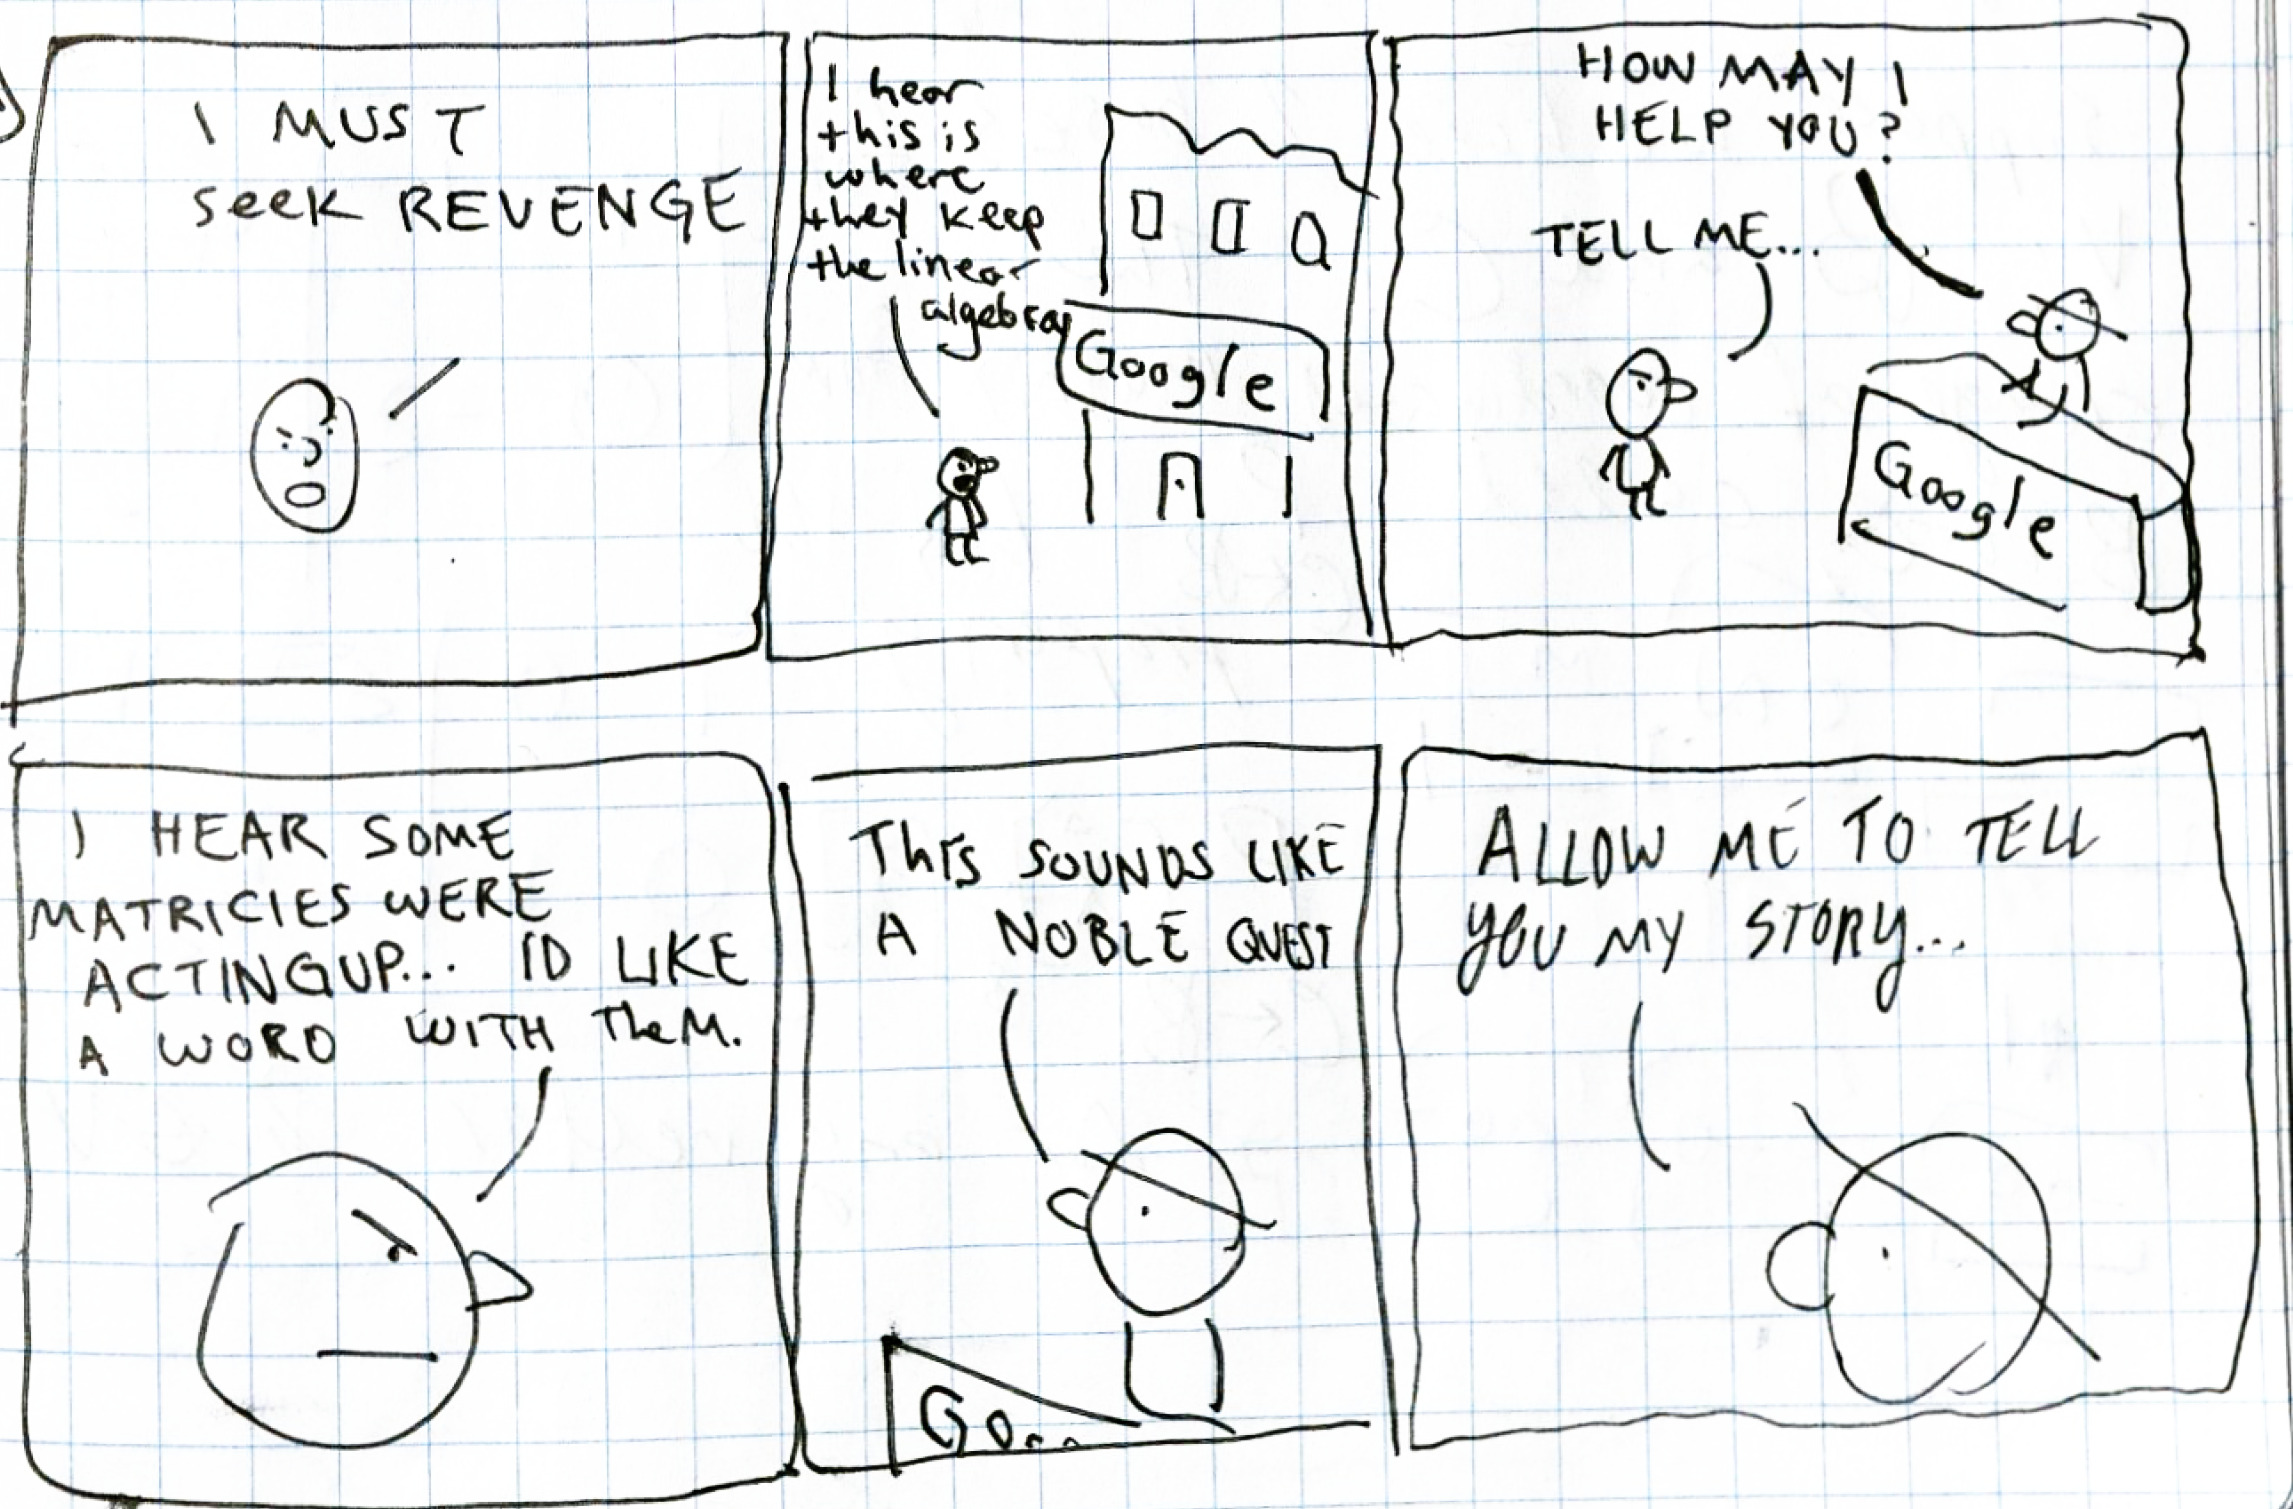 I MUST
SEEK REVENGE
I hear
this is
where
they keep
the linear
algebra
Google
HOW MAY I
HELP YOU?
TELL ME...
Google
I HEAR SOME
MATRICIES WERE
ACTING UP... ID LIKE
A WORD WITH THEM.
THIS SOUNDS LIKE
A NOBLE QUEST
Go...
ALLOW ME TO TELL
YOU MY STORY...